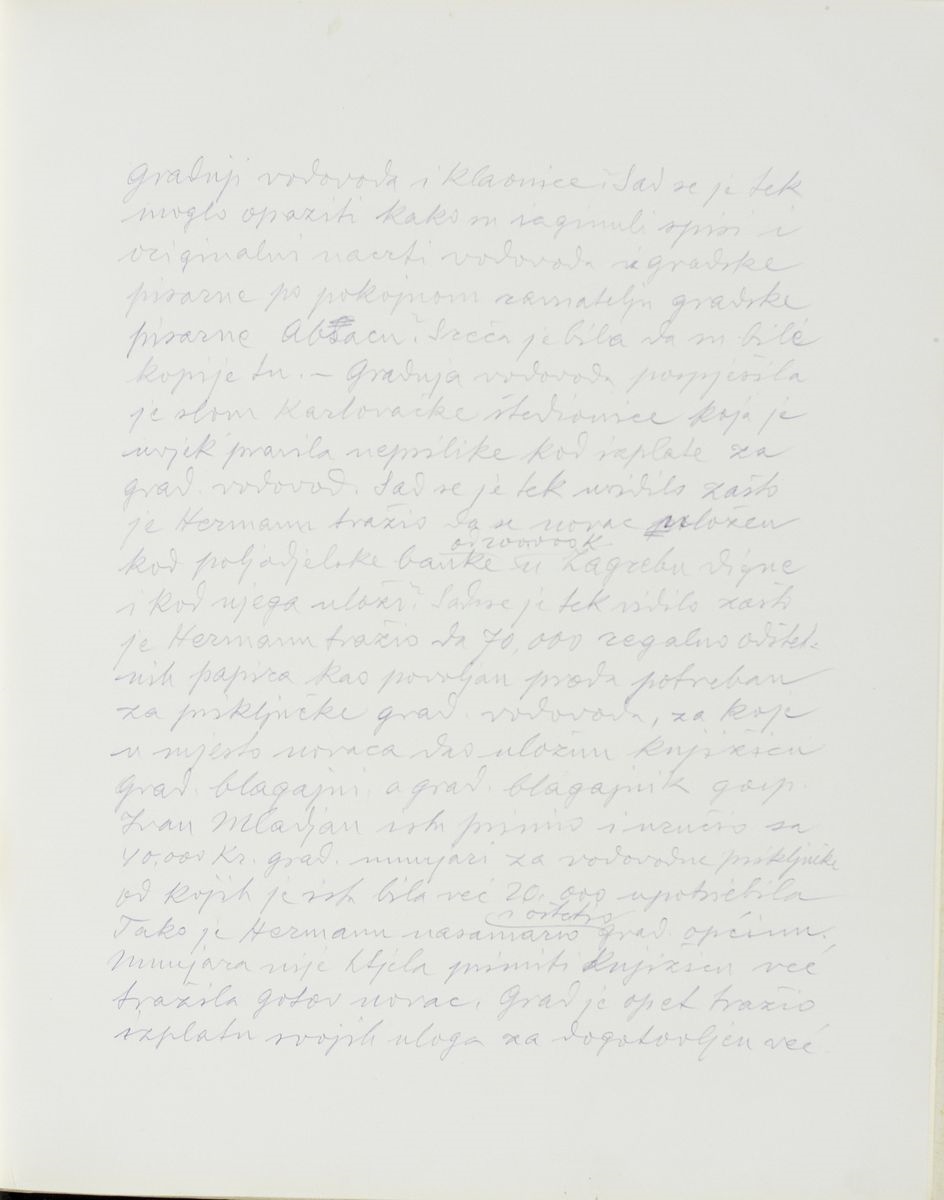 gradnji vodovoda i klaonice. Sad se je tek
moglo opaziti kako su izginuli spisi i
originalni nacrti vodovoda iz gradske
pisarne po pokojnom ravnatelju gradske
pisarne Sreća je bila da su bile
kopije tu. – Gradnja vodovoda pospješila
je slom Karlovačke štedionice koja je
uvjek pravila neprilike kod izplate za
grad. vodovod. Sad se je tek uvidilo zašto
je Hermann tražio da se novac uložen
od 200000 K
kod poljodjelske banke u Zagrebu digne
i kod njega uloži. Sad se je tek vidilo zašto
je Hermann tražio da 70,000 regalno odštet-
nih papira kao povoljan proda potreban
za priključke grad. vodovoda, za koje
u mjesto novaca dao uložnu knjižicu
grad. blagajni, a grad. blagajnik gosp.
Ivan Mladjan istu primio i uručio sa
40,000 Kr. grad. munjari za vodovodne priključke
od kojih je ista bila već 20,000 upotriebila
i oštetio
Tako je Hermann nasamario grad. općinu.
Munjara nije htjela primiti knjižicu već
tražila gotov novac. Grad je opet tražio
izplatu svojih uloga za dogotovljen već